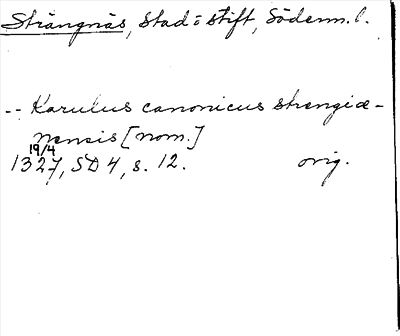 Strängnäs, stad o stift, Söderm. l.
-- Karulus canonicus strengiæ-
nensis [nom.]
19/4
1327, SD 4, s. 12. orig.